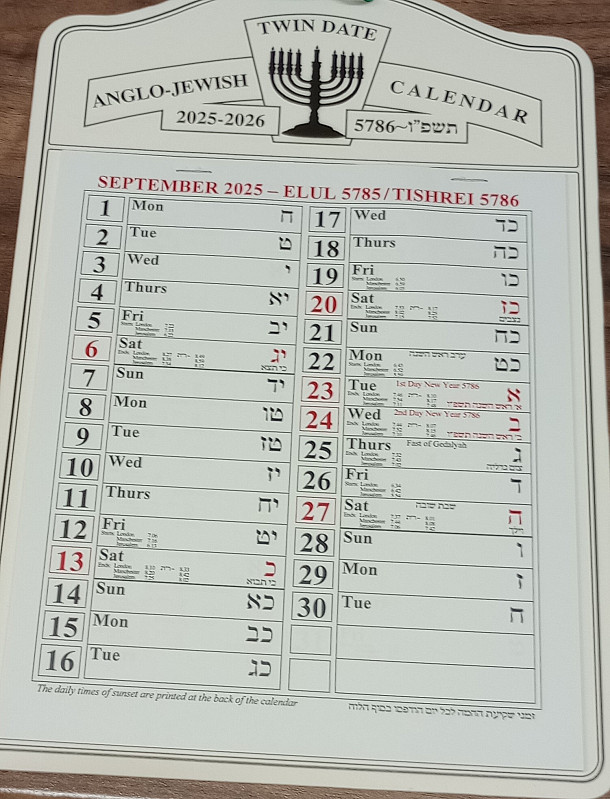 TWIN DATE
ANGLO-JEWISH CALENDAR
2025-2026
5786~תשפ"ו
SEPTEMBER 2025 – ELUL 5785/TISHREI 5786
1 Mon ח
2 Tue ט
3 Wed י
4 Thurs יא
5 Fri יב
6 Sat יג
כי תצא
7 Sun יד
8 Mon טו
9 Tue טז
10 Wed יז
11 Thurs יח
12 Fri יט
13 Sat כ
כי תבוא
14 Sun כא
15 Mon כב
16 Tue כג
17 Wed כד
18 Thurs כה
19 Fri כו
20 Sat כז
נצבים
21 Sun כח
22 Mon ערב ראש השנה כט
23 Tue 1st Day New Year 5786 א
א' ראש השנה תשפ"ו
24 Wed 2nd Day New Year 5786 ב
ב' ראש השנה תשפ"ו
25 Thurs Fast of Gedalyah ג
צום גדליה
26 Fri ד
27 Sat שבת שובה ה
וילך
28 Sun ו
29 Mon ז
30 Tue ח
The daily times of sunset are printed at the back of the calendar
זמני שקיעת החמה לכל יום הודפסו בסוף הלוח